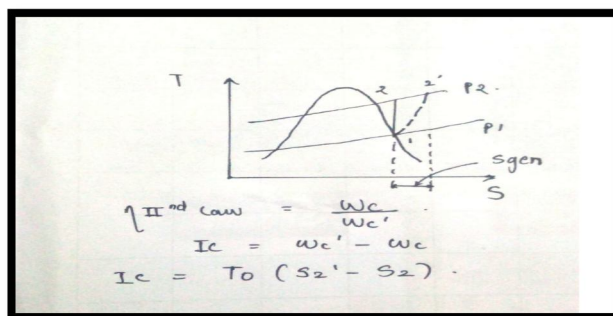 T
2 2' P2.
1 P1
Sgen
S
η IInd Law = Wc / Wc' .
Ic = Wc' - Wc
Ic = To (S2' - S2) .